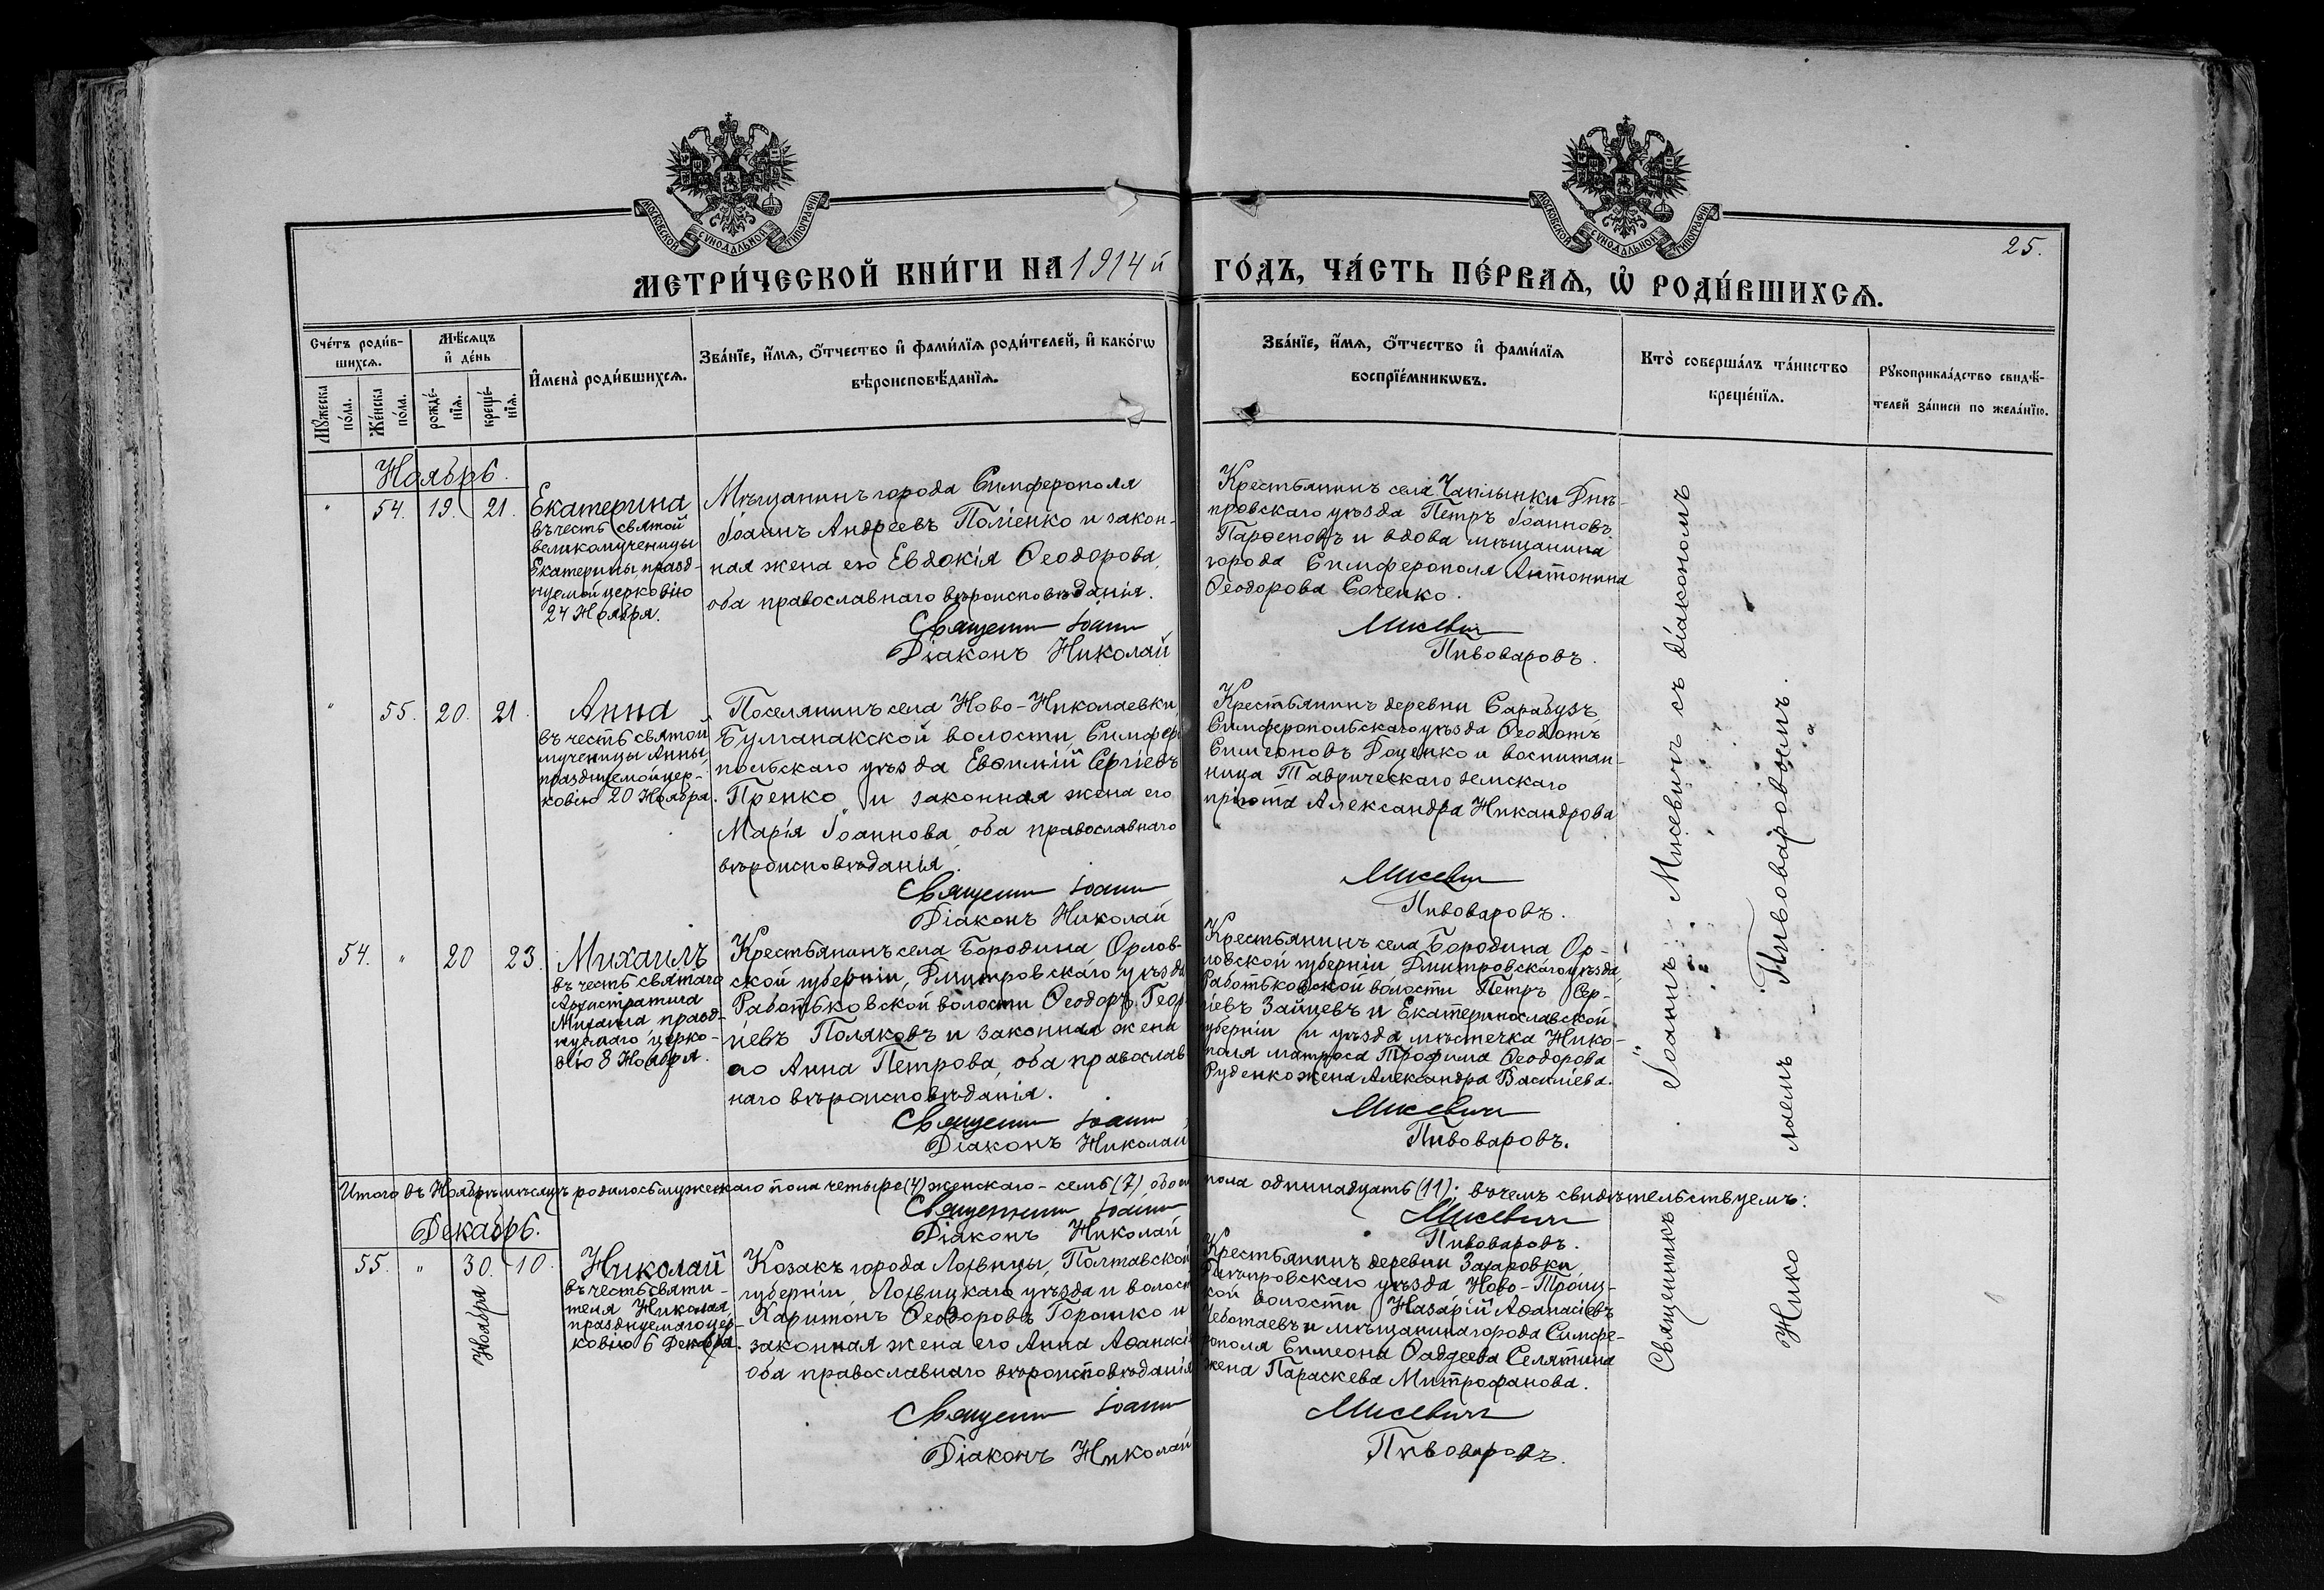 МОСКОВСКОЙ СѴНОДАЛЬНОЙ ТИПОГРАФІИ
МОСКОВСКОЙ СѴНОДАЛЬНОЙ ТИПОГРАФІИ
25.
МЕТРИ́ЧЕСКОЙ КНИ́ГИ НА 1914 й ГО́ДЪ, ЧА́СТЬ ПЕ́РВАѦ, Ѡ҆ РОДИ́ВШИХСѦ.
Сче́тъ роди́в-
шихсѧ.
Мѣ́сѧцъ
и҆ де́нь
Мꙋ́жеска
по́ла.
Же́нска
по́ла.
рожде́-
нїѧ.
креще́-
нїѧ.
И҆мена̀ роди́вшихсѧ.
Зва́нїе, и҆́мѧ, ѻ҆́тчество и҆ фами́лїѧ роди́телей, и҆ како́гѡ
вѣроисповѣ́данїѧ.
Зва́нїе, и҆́мѧ, ѻ҆́тчество и҆ фами́лїѧ
воспрїе́мникѡвъ.
Кто̀ соверша́лъ та́инство
креще́нїѧ.
Рꙋкоприкла́дство свидѣ́-
телей за́писи по жела́нїю.
Ноябрь.
" 54. 19. 21.
Екатерина
въ честь святой
великомученицы
Екатерины, празд-
нуемой церковію
24 Ноября.
Мѣщанинъ города Симферополя
Іоаннъ Андреевъ Поліенко и закон-
ная жена его Евдокія Ѳеодорова,
оба православнаго вѣроисповѣданія.
Священн Іоанн
Діаконъ Николай
Крестьянинъ села Чаплынки Днѣ-
провскаго уѣзда Петръ Іоанновъ
Парѳеновъ и вдова мѣщанина
города Симферополя Антонина
Ѳеодорова Соченко.
Мисевич
Пивоваровъ.
" 55. 20. 21.
Анна
въ честь святой
мученицы Анны,
празднуемой цер-
ковію 20 Ноября.
Поселянинъ села Ново-Николаевки,
Булганакской волости, Симферо
польскаго уѣзда Евѳимій Сергіевъ
Пренко и законная жена его
Марія Іоаннова, оба православнаго
вѣроисповѣданія.
Священн Іоанн
Діаконъ Николай
Крестьянинъ деревни Сарабузъ,
Симферопольскаго уѣзда Ѳеодотъ
Симеоновъ Доценко и воспитан-
ница Таврическаго земскаго
пріюта Александра Никандрова
Мисевич
Пивоваровъ.
54. " 20 23.
Михаилъ
въ честь святаго
Архистратига
Михаила празд-
нуемаго церко-
вію 8 Ноября.
Крестьянинъ села Бородина Орлов-
ской губерніи, Дмитровскаго уѣзда
Работьковской волости Ѳеодоръ Геор-
гіевъ Поляковъ и законная жена
его Анна Петрова, оба православ
наго вѣроисповѣданія.
Священн Іоанн
Діаконъ Николай
Крестьянинъ села Бородина Ор-
ловской губерніи Дмитровскаго уѣзда,
Работьковской волости Петръ Сер-
гіевъ Зайцевъ и Екатеринославской
губерніи и уѣзда мѣстечка Нико-
поля матроса Трофима Ѳеодорова
Руденко жена Александра Василіева.
Мисевич
Пивоваровъ.
Итого въ Ноябрѣ мѣсяцѣ родилось мужескаго пола четыре (4) женскаго - семь (7) обоего пола одиннадцать (11); въ чемъ свидѣтельствуемъ:
Священник Іоанн Мисевич
Діаконъ Николай Пивоваровъ.
Декабрь.
55. " 30. 10.
Ноября
Николай
въ честь святи-
теля Николая,
празднуемаго цер-
ковію 6 Декабря.
Козакъ города Лохвицы, Полтавской
губерніи, Лохвицкаго уѣзда и волост
Харитонъ Ѳеодоровъ Горошко и
законная жена его Анна Аѳанасіе
оба православнаго вѣроисповѣданія
Священн Іоанн
Діаконъ Николай
Крестьянинъ деревни Захаровки,
Днѣпровскаго уѣзда Ново-Троиц-
кой волости Назарій Аѳанасіевъ
Чеботаевъ и мѣщанина города Симфе-
рополя Симеона Ѳаддеева Селятина
жена Параскева Митрофанова.
Мисевич
Пивоваровъ.
Священникъ Іоаннъ Мисевичъ съ діакономъ
Николаемъ Пивоваровымъ.